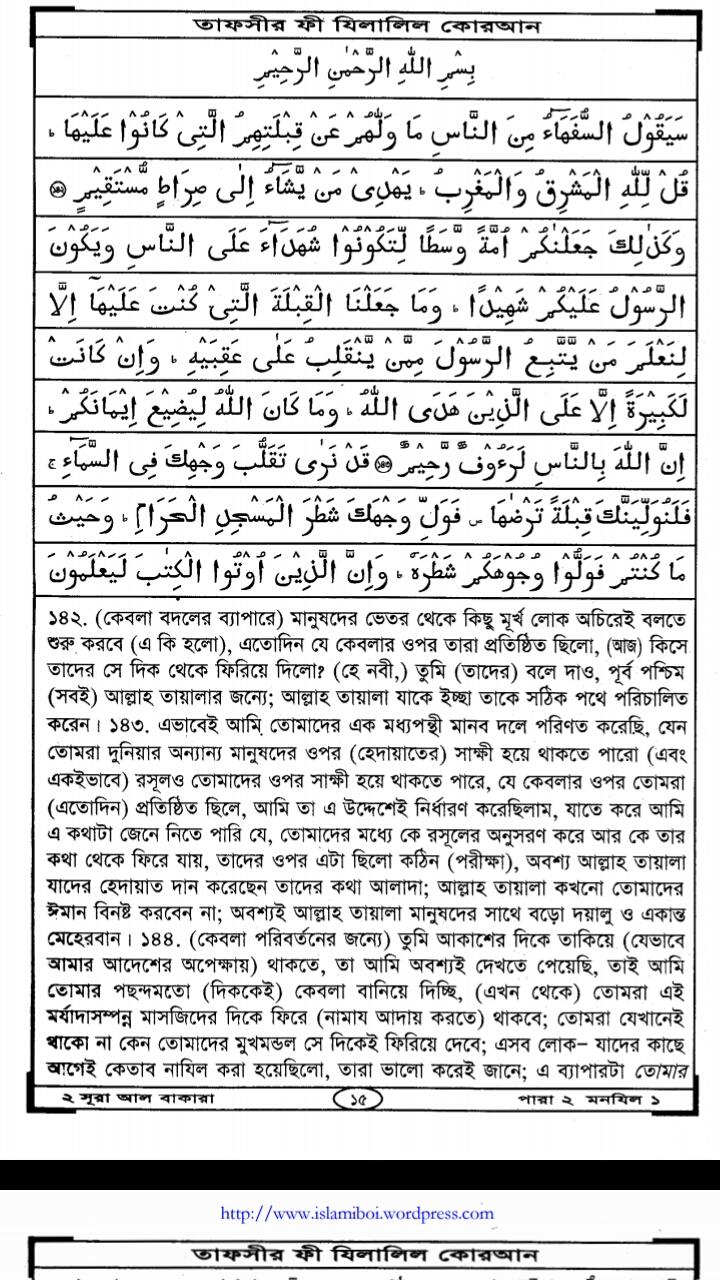 তাফসীর ফী যিলালিল কোরআন
بِسْمِ اللّٰهِ الرَّحْمٰنِ الرَّحِيْمِ
سَيَقُوْلُ السُّفَهَآءُ مِنَ النَّاسِ مَا وَلّٰىهُمْ عَنْ قِبْلَتِهِمُ الَّتِىْ كَانُوْا عَلَيْهَا ؕ
قُلْ لِّلّٰهِ الْمَشْرِقُ وَالْمَغْرِبُ ؕ يَهْدِىْ مَنْ يَّشَآءُ اِلٰى صِرَاطٍ مُّسْتَقِيْمٍ ﴿۱۴۲﴾
وَكَذٰلِكَ جَعَلْنٰكُمْ اُمَّةً وَّسَطًا لِّتَكُوْنُوْا شُهَدَآءَ عَلَى النَّاسِ وَيَكُوْنَ
الرَّسُوْلُ عَلَيْكُمْ شَهِيْدًا ؕ وَمَا جَعَلْنَا الْقِبْلَةَ الَّتِىْ كُنْتَ عَلَيْهَآ اِلَّا
لِنَعْلَمَ مَنْ يَّتَّبِعُ الرَّسُوْلَ مِمَّنْ يَّنْقَلِبُ عَلٰى عَقِبَيْهِ ؕ وَاِنْ كَانَتْ
لَكَبِيْرَةً اِلَّا عَلَى الَّذِيْنَ هَدَى اللّٰهُ ؕ وَمَا كَانَ اللّٰهُ لِيُضِيْعَ اِيْمَانَكُمْ ؕ
اِنَّ اللّٰهَ بِالنَّاسِ لَرَءُوْفٌ رَّحِيْمٌ ﴿۱۴۳﴾ قَدْ نَرٰى تَقَلُّبَ وَجْهِكَ فِى السَّمَآءِ ج
فَلَنُوَلِّيَنَّكَ قِبْلَةً تَرْضٰىهَا ص فَوَلِّ وَجْهَكَ شَطْرَ الْمَسْجِدِ الْحَرَامِ ؕ وَحَيْثُ
مَا كُنْتُمْ فَوَلُّوْا وُجُوْهَكُمْ شَطْرَهٗ ؕ وَاِنَّ الَّذِيْنَ اُوْتُوا الْكِتٰبَ لَيَعْلَمُوْنَ
১৪২. (কেবলা বদলের ব্যাপারে) মানুষদের ভেতর থেকে কিছু মূর্খ লোক অচিরেই বলতে
শুরু করবে (এ কি হলো), এতোদিন যে কেবলার ওপর তারা প্রতিষ্ঠিত ছিলো, (আজ) কিসে
তাদের সে দিক থেকে ফিরিয়ে দিলো? (হে নবী,) তুমি (তাদের) বলে দাও, পূর্ব পশ্চিম
(সবই) আল্লাহ তায়ালার জন্যে; আল্লাহ তায়ালা যাকে ইচ্ছা তাকে সঠিক পথে পরিচালিত
করেন। ১৪৩. এভাবেই আমি তোমাদের এক মধ্যপন্থী মানব দলে পরিণত করেছি, যেন
তোমরা দুনিয়ার অন্যান্য মানুষদের ওপর (হেদায়াতের) সাক্ষী হয়ে থাকতে পারো (এবং
একইভাবে) রসূলও তোমাদের ওপর সাক্ষী হয়ে থাকতে পারে, যে কেবলার ওপর তোমরা
(এতোদিন) প্রতিষ্ঠিত ছিলে, আমি তা এ উদ্দেশেই নির্ধারণ করেছিলাম, যাতে করে আমি
এ কথাটা জেনে নিতে পারি যে, তোমাদের মধ্যে কে রসূলের অনুসরণ করে আর কে তার
কথা থেকে ফিরে যায়, তাদের ওপর এটা ছিলো কঠিন (পরীক্ষা), অবশ্য আল্লাহ তায়ালা
যাদের হেদায়াত দান করেছেন তাদের কথা আলাদা; আল্লাহ তায়ালা কখনো তোমাদের
ঈমান বিনষ্ট করবেন না; অবশ্যই আল্লাহ তায়ালা মানুষদের সাথে বড়ো দয়ালু ও একান্ত
মেহেরবান। ১৪৪. (কেবলা পরিবর্তনের জন্যে) তুমি আকাশের দিকে তাকিয়ে (যেভাবে
আমার আদেশের অপেক্ষায়) থাকতে, তা আমি অবশ্যই দেখতে পেয়েছি, তাই আমি
তোমার পছন্দমতো (দিককেই) কেবলা বানিয়ে দিচ্ছি, (এখন থেকে) তোমরা এই
মর্যাদাসম্পন্ন মাসজিদের দিকে ফিরে (নামায আদায় করতে) থাকবে; তোমরা যেখানেই
থাকো না কেন তোমাদের মুখমন্ডল সে দিকেই ফিরিয়ে দেবে; এসব লোক– যাদের কাছে
আগেই কেতাব নাযিল করা হয়েছিলো, তারা ভালো করেই জানে; এ ব্যাপারটা তোমার
২ সূরা আল বাকারা ১৫ পারা ২ মনযিল ১
http://www.islamiboi.wordpress.com
তাফসীর ফী যিলালিল কোরআন